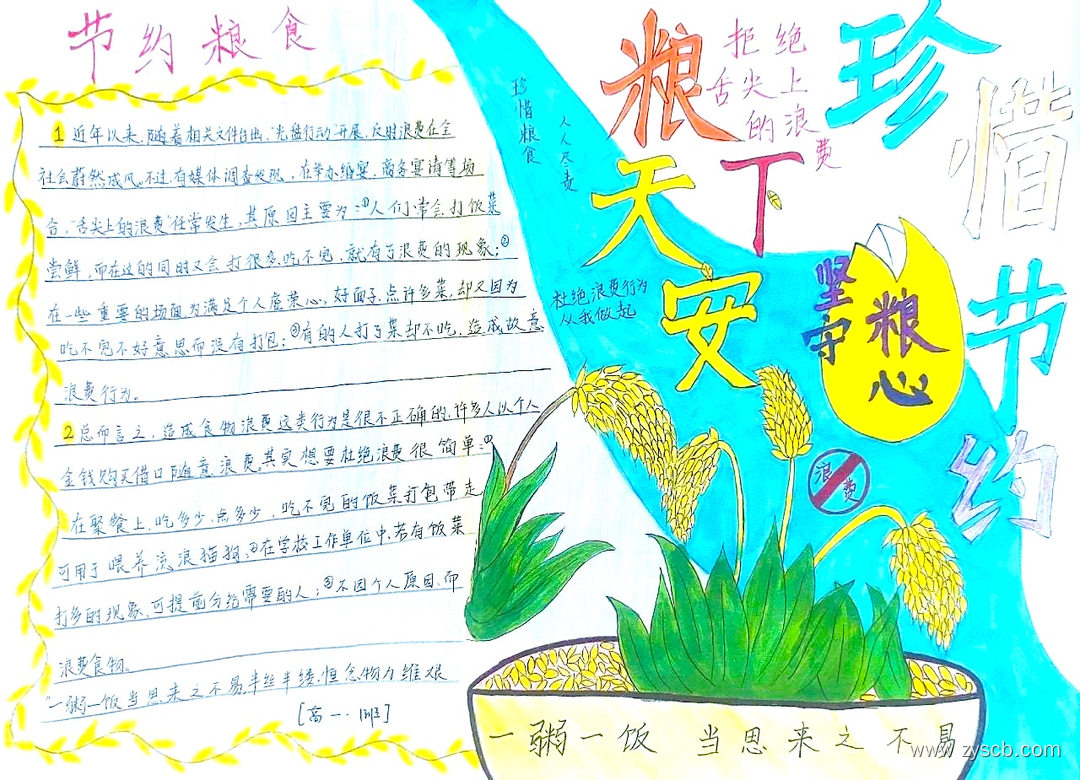 节约粮食
1 近年以来,随着相关文件台出,"光盘行动"开展,反对浪费在全
社会蔚然成风。不过,有媒体调查发现,在举办婚宴、商务宴请等场
合,"舌尖上的浪费"任常发生,其原因主要为:①人们常会打饭菜
尝鲜,而在这的同时又会打很多,吃不完,就有了浪费的现象;②
在一些重要的场面为满足个人虚荣心,好面子,点许多菜,却又因为
吃不完不好意思而没有打包;③有的人打了菜却不吃,造成故意
浪费行为。
2 总而言之,造成食物浪费这类行为是很不正确的,许多人以个人
金钱购买借口随意浪费。其实想要杜绝浪费很简单:①
在聚餐上,吃多少,点多少,吃不完的饭菜打包带走
可用于喂养流浪猫狗,②在学校工作单位中,若有饭菜
打多的现象,可提前分给需要的人;③不因个人原因,而
浪费食物。
"一粥一饭当思来之不易,半丝半缕,恒念物力维艰
[高一·1班]
珍惜粮食
人人尽责
粮
天下
安
拒绝
舌尖上
的浪费
杜绝浪费行为
从我做起
珍惜节约
坚守
粮心
浪费
一粥一饭 当思来之不易
www.zyscb.com